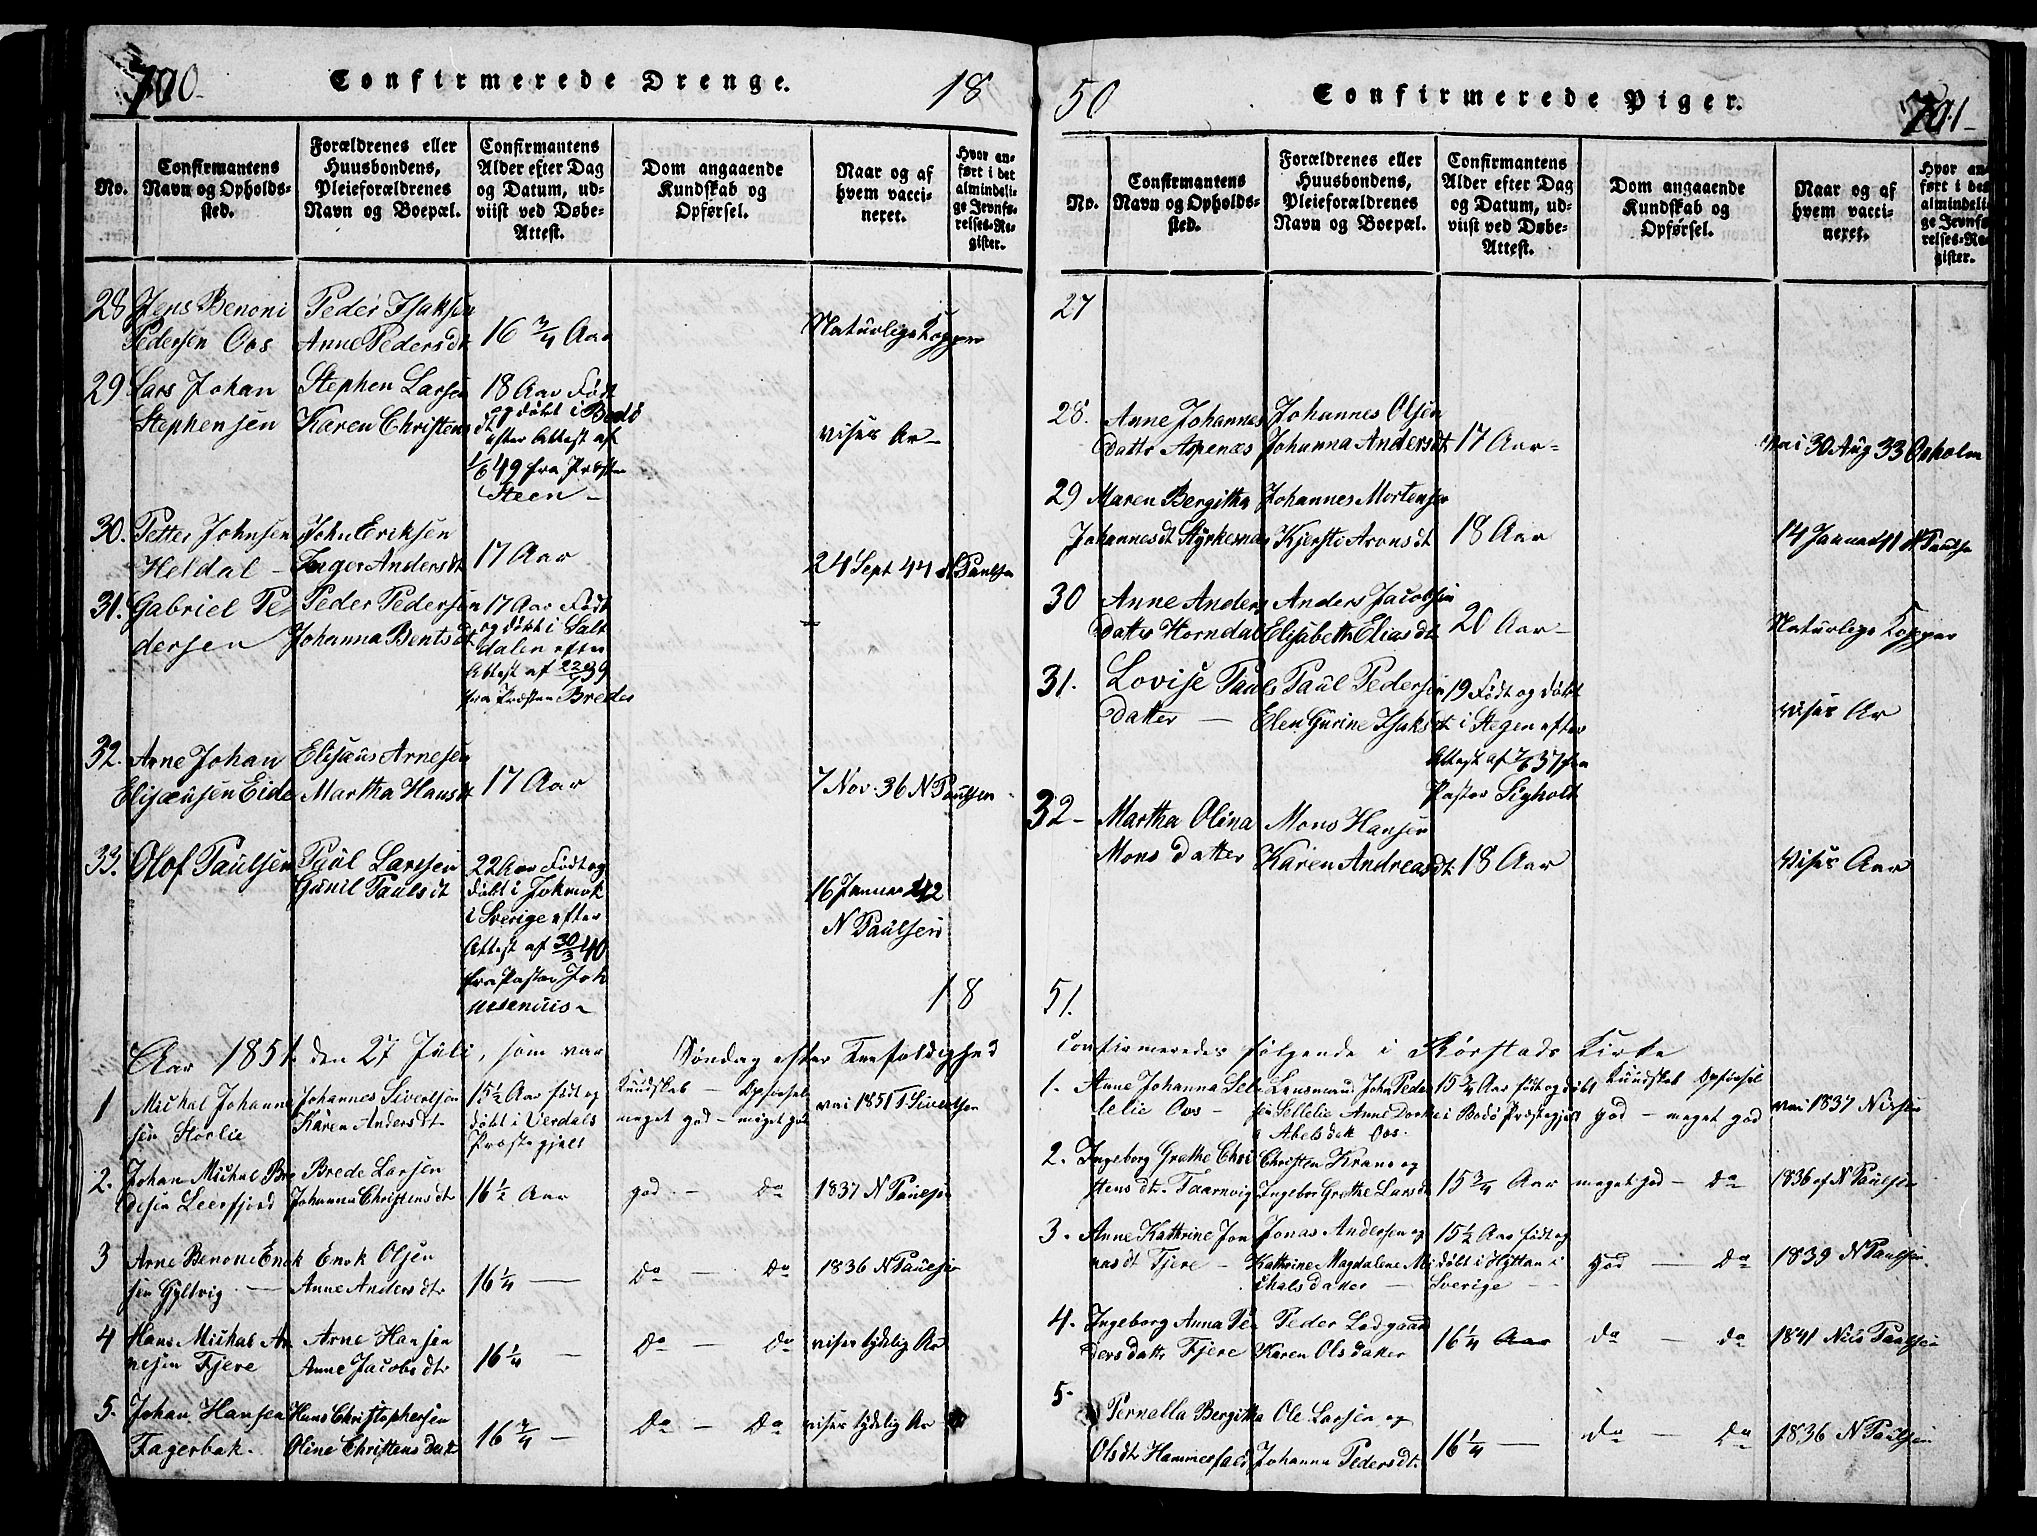 700.
Confirmerede Drenge.
18
No.
Confirmantens Navn og Opholds-sted.
Forældrenes eller Huusbondens, Pleieforældrenes Navn og Boepæl.
Confirmantens Alder efter Dag og Datum, ud-viist ved Døbe-Attest.
Dom angaaende Kundskab og Opførsel.
Naar og af hvem vacci-neret.
Hvor an-ført i det almindeli-ge Jevnfø-relses-Re-gister.
28 Jens Benoni Peder Isaksen
Pedersen Oos Anne Pedersdt 16 3/4 Aar Naturlige Kopper
29 Lars Johan Stephen Larsen 18 Aar Født
Stephensen Karen Christensdt og døbt i Bodø viser Ar
efter Attest af
1/6 49 fra Præsten
Steen
30. Petter Johnsen John Eriksen
Heldal Inger Andersdt 17 Aar 24 Sept 44 N Paulsen
31. Gabriel Pe Peder Pedersen 17 Aar Født
dersen Johanna Bentsdt og døbt i Salt
dalen efter
Attest af
fra Præsten Brede
32. Arne Johan Elisæus Arnesen
Elisæusen Eide Martha Hansdt 17 Aar 7 Nov. 36 N Paulsen
33. Olof Paulsen Paul Larsen 22 Aar Født og
Gunil Paulsdt døbt i Jokmok 16 Januar 42
i Sverige efter N Paulsen
Attest af 30/3 40
fra Pastor
18
Aar 1851 den 27 Juli, som var Søndag efter Trefoldighed
1 Michal Johanne Johannes Sivertsen 15 1/2 Aar født og Kundskab Opførsel
sen Storlie Karen Andersdt døbt i Verdals meget god meget god vac 1851 T Sivertsen
Præstegjelt
2. Johan Michal Bre Brede Larsen
desen Leerfjord Johanna Christensdt 16 1/2 Aar god Do 1837 N Paulsen
3 Arne Benoni Enok Enok Olsen
sen Gyltvig Anne Andersdtr 16 1/4 Do Do 1836 N Paulsen
4 Hans Michal Ar Arne Hansen
nesen Fjere Anne Jacobsdtr 16 1/4 Do Do viser tydelig Ar
5. Johan Hansen Hans Christophersen
Fagerbak. Oline Christensdatt 16 3/4 Do Do viser tydelig Ar
50
Confirmerede Piger.
701
No.
Confirmantens Navn og Opholds-sted.
Forældrenes eller Huusbondens, Pleieforældrenes Navn og Boepæl.
Confirmantens Alder efter Dag og Datum, ud-viist ved Døbe-Attest.
Dom angaaende Kundskab og Opførsel.
Naar og af hvem vacci-neret.
Hvor an-ført i det almindeli-ge Jevnfø-relses-Re-gister.
27
28. Anne Johannes Johannes Olsen
datter Aspenæs Johanna Andersdt 17 Aar 30 Aug 33
29 Maren Bergitha Johannes Mortensen
Johannesdt Styrkesnes Kjersti Aronsdt 18 Aar 14 Januar 41 N Paulsen
30 Anne Anders Anders Jacobsen
datter Horndal Elisabeth Eliasdt 20 Aar Naturlige Kopper
31. Lovise Pauls Paul Pedersen 19 Født og døbt
datter Elen Gurine Isaksdt i Stegen efter viser Ar
Attest af 37 fra
Pastor Sigholt
32 Martha Olina Mons Hansen
Monsdatter Karen Andreasdt 18 Aar viser Aar
51.
Confirmeredes følgende i Rørstads Kirke
1. Anne Johanna Sel Lensmand John Peder 15 3/4 Aar født og døbt Kundskab Opførsel
lelie Oos sen Sellelie Anne Dorthe i Bodø Præstegjeld god meget god 1837
Abelsdatt Oos.
2. Ingeborg Grethe Chri Christen Krane og
stensdt. Taarnvig Ingebor Grethe Larsdt 15 3/4 Aar meget god Do 1836 af N Paulsen
3. Anne Kathrine Jon Jonas Andersen og 15 1/2 Aar født og
nasdt Fjere Kathrine Magdalene Mi døbt i Hyttan i god Do 1839 N Paulsen
chalsdatter Sverige
4. Ingeborg Anna Pe Peder Ledgaard
dersdattr Fjere Karen Olsdatter 16 1/4 Aar do Do 1841 Nils Paulsen
5 Pernella Bergitha Ole Larsen og
Olsdtr Hammerfald Johanna Pedersdt. 16 1/4 do Do 1836 N Paulsen